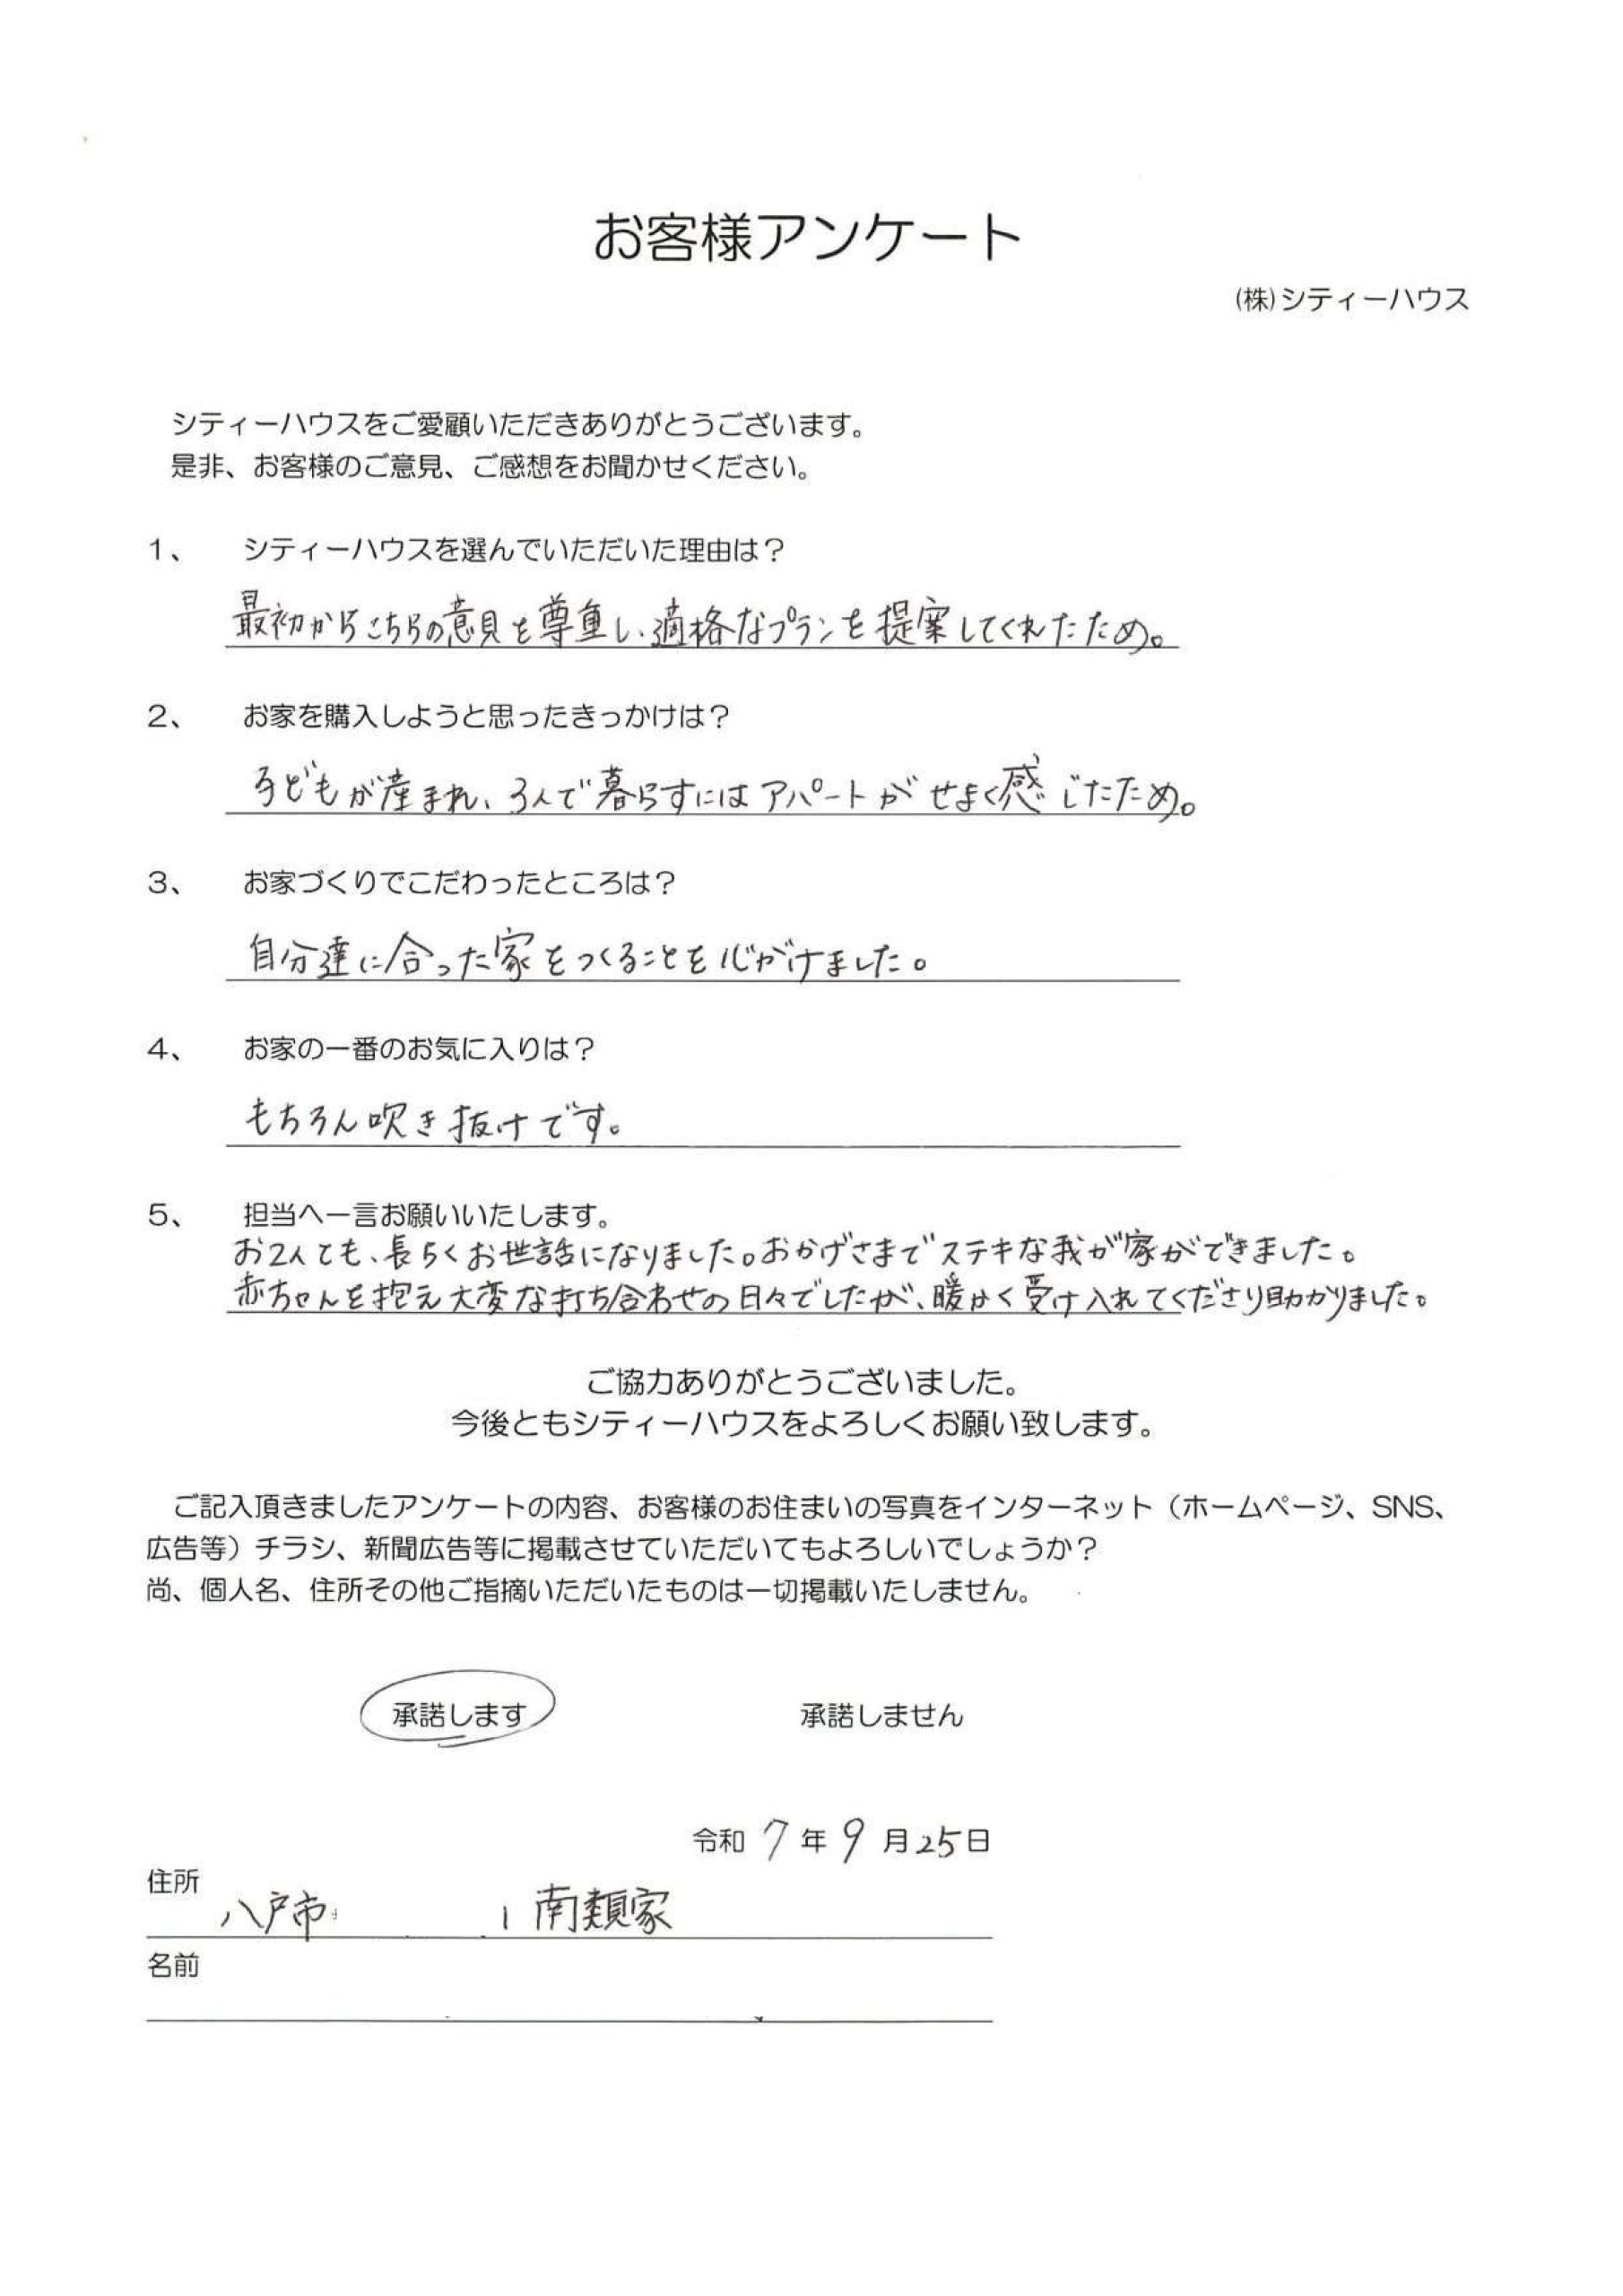 お客様アンケート
(株)シティーハウス
シティーハウスをご愛顧いただきありがとうございます。
是非、お客様のご意見、ご感想をお聞かせください。
1、 シティーハウスを選んでいただいた理由は?
最初からこちらの意見を尊重し、適格なプランを提案してくれたため。
2、 お家を購入しようと思ったきっかけは?
子どもが産まれ、3人で暮らすにはアパートがせまく感じたため。
3、 お家づくりでこだわったところは?
自分達に合った家をつくることを心がけました。
4、 お家の一番のお気に入りは?
もちろん吹き抜けです。
5、 担当へ一言お願いいたします。
お2人とも、長らくお世話になりました。おかげさまでステキな我が家ができました。
赤ちゃんを抱え大変な打ち合わせの日々でしたが、暖かく受け入れてくださり助かりました。
ご協力ありがとうございました。
今後ともシティーハウスをよろしくお願い致します。
ご記入頂きましたアンケートの内容、お客様のお住まいの写真をインターネット(ホームページ、SNS、
広告等)チラシ、新聞広告等に掲載させていただいてもよろしいでしょうか?
尚、個人名、住所その他ご指摘いただいたものは一切掲載いたしません。
承諾します 承諾しません
令和 7 年 9 月 25 日
住所
八戸市 南類家
名前